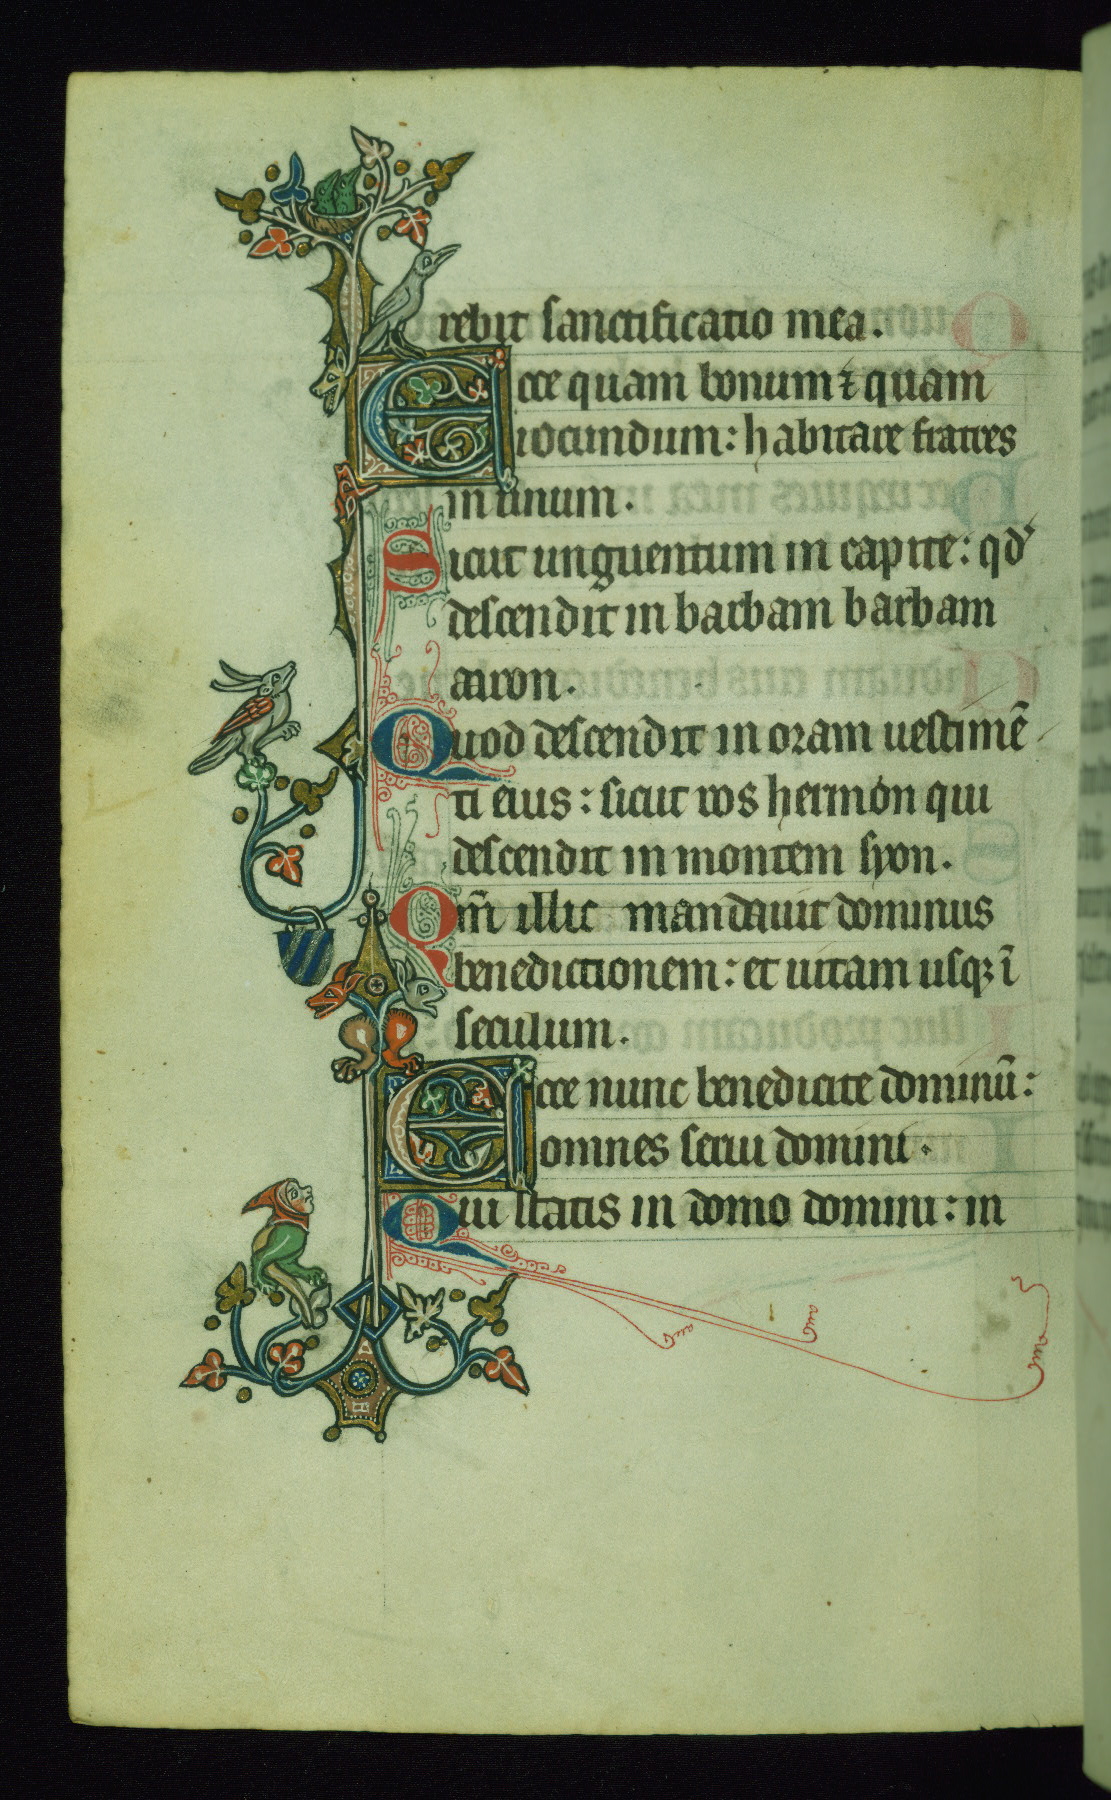 rebit sanctificatio mea.
Ecce quam bonum ⁊ quam
iocundum: habitare fratres
in unum.
Sicut unguentum in capite: qd'
descendit in barbam barbam
aaron.
Quod descendit in oram uestimē
ti eius: sicut ros hermon qui
descendit in montem syon.
Qm̄ illic mandauit dominus
benedictionem: et uitam usqꝫ ī
seculum.
Ecce nunc benedicite dominū:
omnes serui domini.
Qui statis in domo domini: in